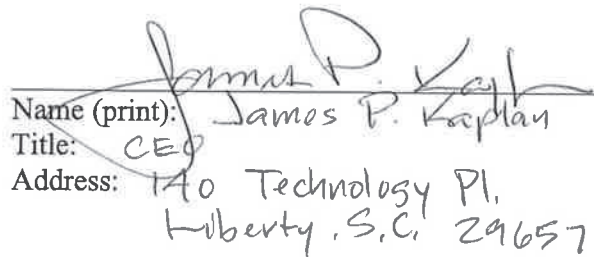 James P. Kaplan
Name (print): James P. Kaplan
Title: CEO
Address: 140 Technology Pl.
Liberty, S.C. 29657